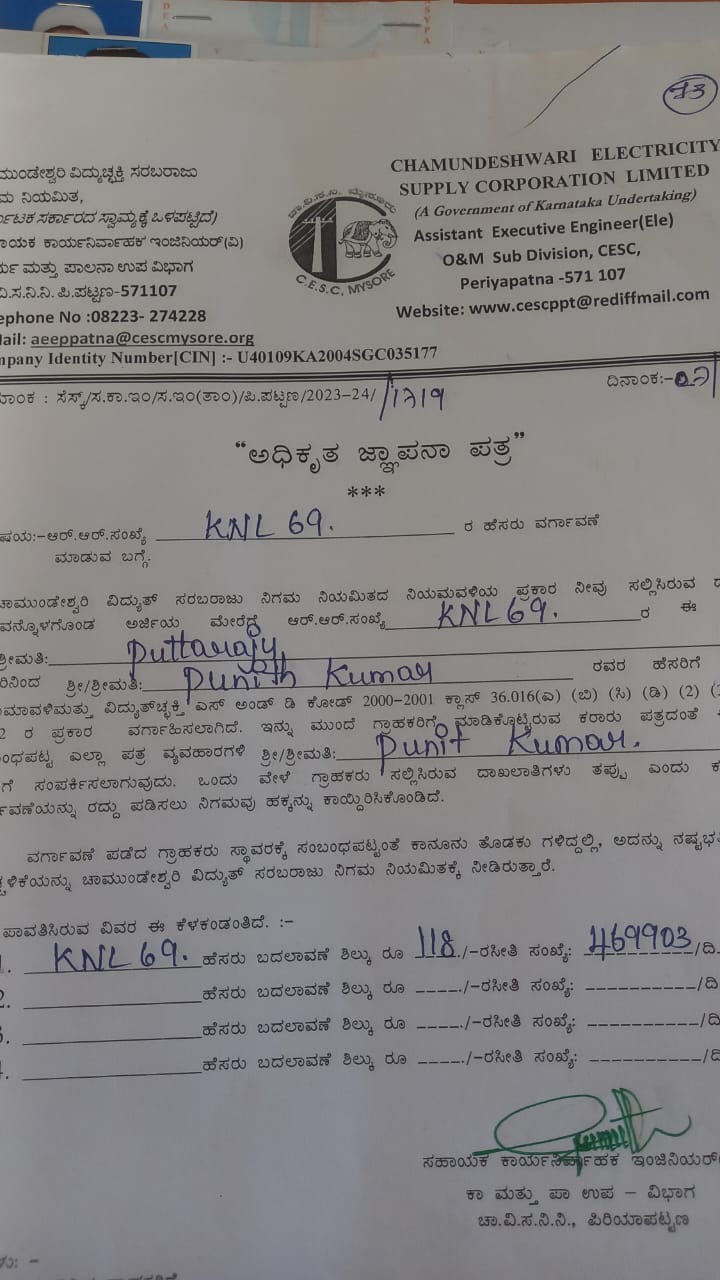 73
ಮುಂಡೇಶ್ವರಿ ವಿದ್ಯುಚ್ಛಕ್ತಿ ಸರಬರಾಜು
ಮ ನಿಯಮಿತ,
ರ್ನಾಟಕ ಸರ್ಕಾರದ ಸ್ವಾಮ್ಯಕ್ಕೆ ಒಳಪಟ್ಟಿದೆ)
ಾಯಕ ಕಾರ್ಯನಿರ್ವಾಹಕ ಇಂಜಿನಿಯರ್(ವಿ)
ರ್ಯ ಮತ್ತು ಪಾಲನಾ ಉಪ ವಿಭಾಗ
.ವಿ.ಸ.ನಿ.ನಿ. ಪಿ.ಪಟ್ಟಣ-571107
ephone No :08223- 274228
Mail: aeeppatna@cescmysore.org
mpany Identity Number[CIN] :- U40109KA2004SGC035177
ಚಾ.ವಿ.ಸ.ನಿ.ನಿ. ಮೈಸೂರು
C.E.S.C, MYSORE
CHAMUNDESHWARI ELECTRICITY
SUPPLY CORPORATION LIMITED
(A Government of Karnataka Undertaking)
Assistant Executive Engineer(Ele)
O&M Sub Division, CESC,
Periyapatna -571 107
Website: www.cescppt@rediffmail.com
ಾಂಕ : ಸೆಸ್ಕ್/ಸ.ಕಾ.ಇಂ/ಸ.ಇಂ(ತಾಂ)/ಪಿ.ಪಟ್ಟಣ/2023-24/ /1719
ದಿನಾಂಕ:-07/
"ಅಧಿಕೃತ ಜ್ಞಾಪನಾ ಪತ್ರ"
***
ಷಯ:-ಆರ್.ಆರ್.ಸಂಖ್ಯೆ KNL 69. ರ ಹೆಸರು ವರ್ಗಾವಣೆ
ಮಾಡುವ ಬಗ್ಗೆ.
ಚಾಮುಂಡೇಶ್ವರಿ ವಿದ್ಯುತ್ ಸರಬರಾಜು ನಿಗಮ ನಿಯಮಿತದ ನಿಯಮವಳಿಯ ಪ್ರಕಾರ ನೀವು ಸಲ್ಲಿಸಿರುವ ದ
ವನ್ನೊಳಗೊಂಡ ಅರ್ಜಿಯ ಮೇರೆಗೆ ಆರ್.ಆರ್.ಸಂಖ್ಯೆ KNL 69. ರ ಈ
ಶ್ರೀಮತಿ: Puttaraju
ರಿನಿಂದ ಶ್ರೀ/ಶ್ರೀಮತಿ: Punith Kumar ರವರ ಹೆಸರಿಗೆ
ಮಾವಳಿಮತ್ತು ವಿದ್ಯುತ್‌ಚ್ಛಕ್ತಿ ಎಸ್ ಅಂಡ್ ಡಿ ಕೋಡ್ 2000-2001 ಕ್ಲಾಸ್ 36.016(ಎ) (ಬಿ) (ಸಿ) (ಡಿ) (2)
2 ರ ಪ್ರಕಾರ ವರ್ಗಾಹಿಸಲಾಗಿದೆ. ಇನ್ನು ಮುಂದೆ ಗ್ರಾಹಕರಿಗೆ ಮಾಡಿಕೊಟ್ಟಿರುವ ಕರಾರು ಪತ್ರದಂತೆ
ಂಧಪಟ್ಟ ಎಲ್ಲಾ ಪತ್ರ ವ್ಯವಹಾರಗಳಿ ಶ್ರೀ/ಶ್ರೀಮತಿ: Punit Kumar.
ಗೆ ಸಂಪರ್ಕಿಸಲಾಗುವುದು. ಒಂದು ವೇಳೆ ಗ್ರಾಹಕರು ಸಲ್ಲಿಸಿರುವ ದಾಖಲಾತಿಗಳು ತಪ್ಪು ಎಂದು ಕ
ರ್ಾವಣೆಯನ್ನು ರದ್ದು ಪಡಿಸಲು ನಿಗಮವು ಹಕ್ಕನ್ನು ಕಾಯ್ದಿರಿಸಿಕೊಂಡಿದೆ.
ವರ್ಗಾವಣೆ ಪಡೆದ ಗ್ರಾಹಕರು ಸ್ಥಾವರಕ್ಕೆ ಸಂಬಂಧಪಟ್ಟಂತೆ ಕಾನೂನು ತೊಡಕು ಗಳಿದ್ದಲ್ಲಿ, ಅದನ್ನು ನಷ್ಟಭ
ಚ್ಚಳಿಕೆಯನ್ನು ಚಾಮುಂಡೇಶ್ವರಿ ವಿದ್ಯುತ್ ಸರಬರಾಜು ನಿಗಮ ನಿಯಮಿತಕ್ಕೆ ನೀಡಿರುತ್ತಾರೆ.
ಪಾವತಿಸಿರುವ ವಿವರ ಈ ಕೆಳಕಂಡಂತಿದೆ. :-
1. KNL 69. ಹೆಸರು ಬದಲಾವಣೆ ಶಿಲ್ಕು ರೂ 118./-ರಸೀತಿ ಸಂಖ್ಯೆ: 469903/ದಿ.
2. ಹೆಸರು ಬದಲಾವಣೆ ಶಿಲ್ಕು ರೂ ____./-ರಸೀತಿ ಸಂಖ್ಯೆ: __________/ದಿ
3. ಹೆಸರು ಬದಲಾವಣೆ ಶಿಲ್ಕು ರೂ ____./-ರಸೀತಿ ಸಂಖ್ಯೆ: __________/ದಿ
4. ಹೆಸರು ಬದಲಾವಣೆ ಶಿಲ್ಕು ರೂ ____./-ರಸೀತಿ ಸಂಖ್ಯೆ: __________/ದಿ
ಸಹಾಯಕ ಕಾರ್ಯನಿರ್ವಾಹಕ ಇಂಜಿನಿಯರ್
ಕಾ ಮತ್ತು ಪಾ ಉಪ - ವಿಭಾಗ
ಚಾ.ವಿ.ಸ.ನಿ.ನಿ., ಪಿರಿಯಾಪಟ್ಟಣ